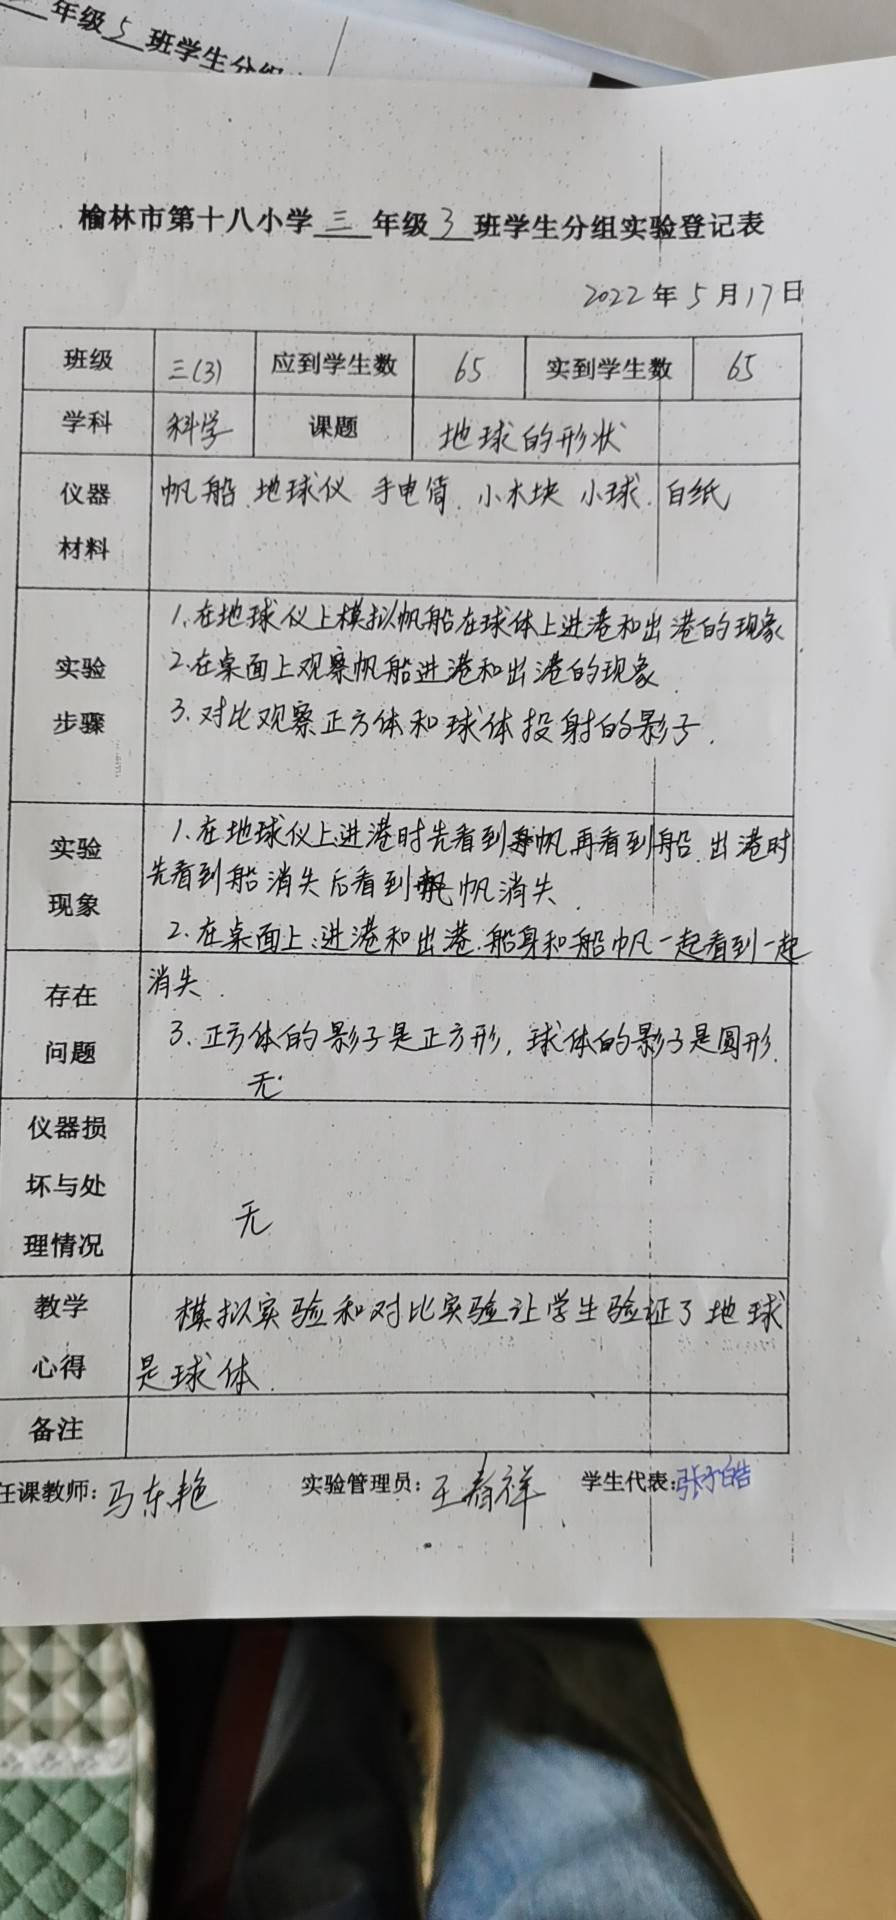 年级5班学生分组
榆林市第十八小学三年级3班学生分组实验登记表
2022年5月17日
班级 三(3) 应到学生数 65 实到学生数 65
学科 科学 课题 地球的形状
仪器 帆船.地球仪 手电筒.小木块 小球.白纸
材料
1.在地球仪上模拟帆船在球体上进港和出港的现象
实验 2.在桌面上观察帆船进港和出港的现象.
步骤 3.对比观察正方体和球体投射的影子.
实验 1.在地球仪上进港时先看到帆再看到船.出港时
先看到船消失后看到帆消失.
现象
2.在桌面上:进港和出港.船身和船帆一起看到一起
存在 消失.
问题 3.正方体的影子是正方形,球体的影子是圆形.
无.
仪器损
坏与处
理情况 无
教学 模拟实验和对比实验让学生验证了地球
心得 是球体.
备注
任课教师:马东艳 实验管理员:王春祥 学生代表:张子皓